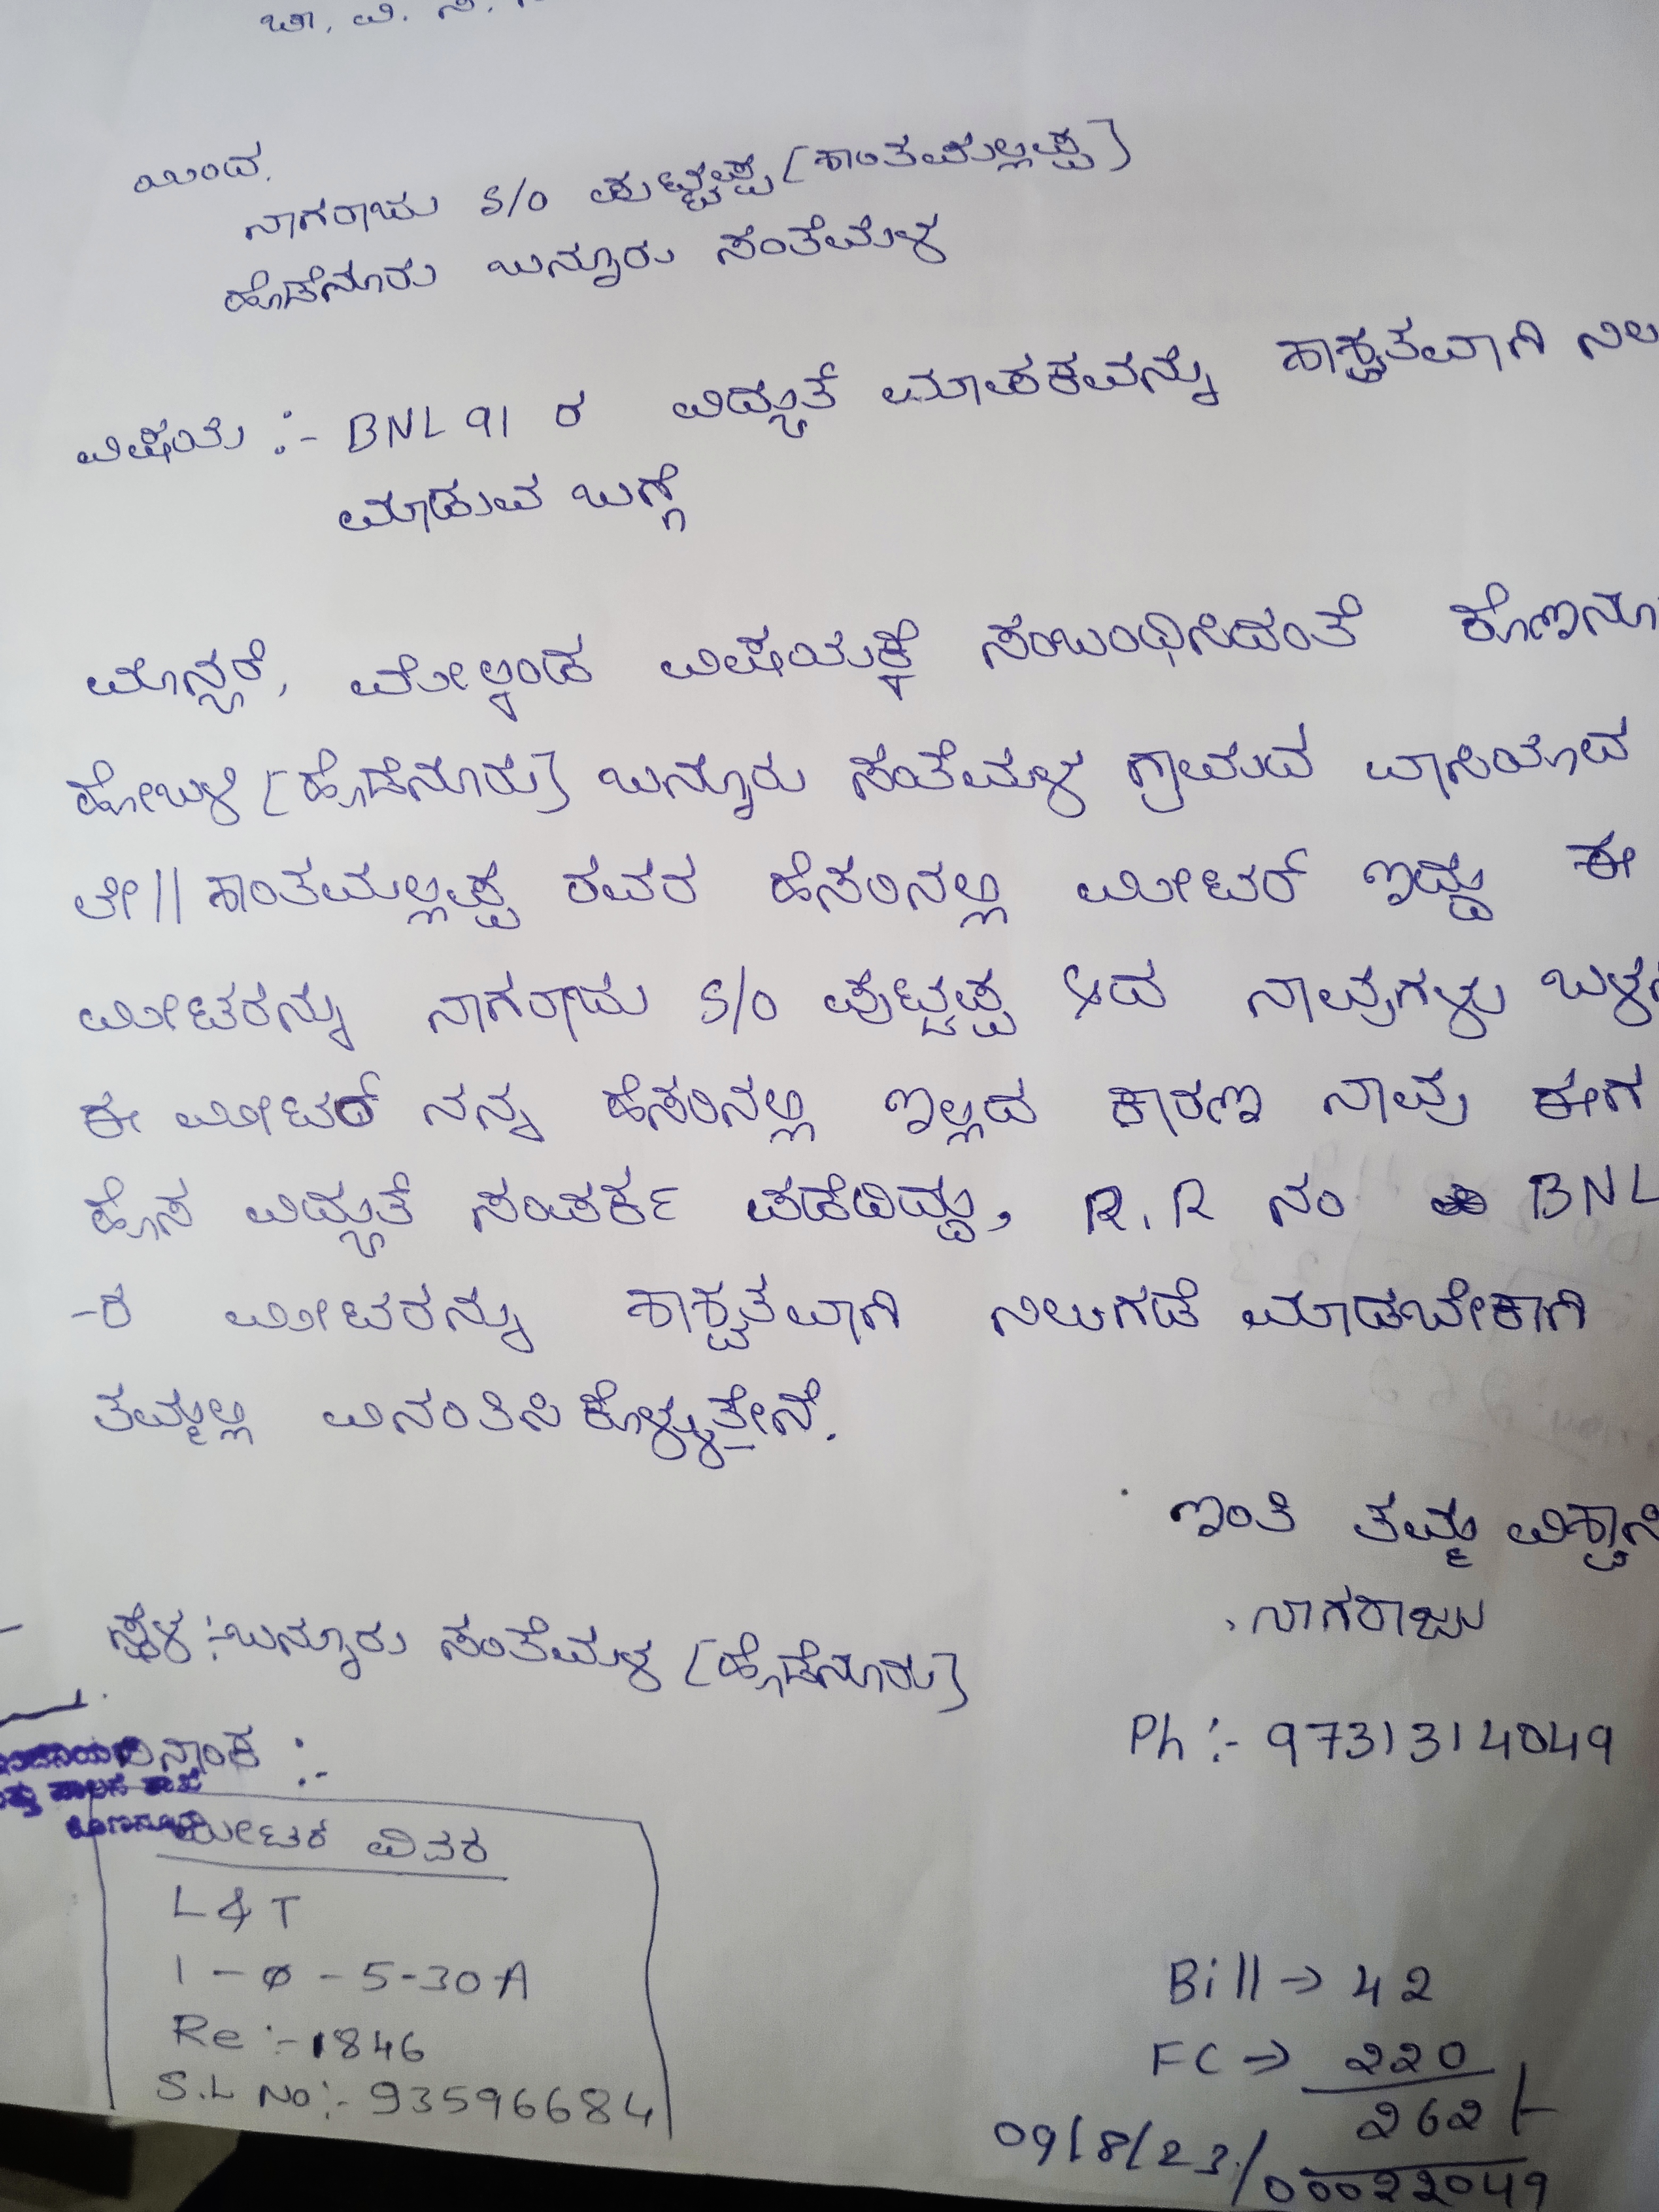 ಯಿಂದ.
ನಾಗರಾಜು S/O ಪುಟ್ಟಪ್ಪ (ಶಾಂತಮಲ್ಲಪ್ಪ)
ಹೊಡೆನೂರು ಬನ್ನೂರು ಸಂತೆಮಳ
ವಿಷಯ :- BNL 91 ರ ವಿದ್ಯುತ್ ಮಾಪಕವನ್ನು ಶಾಶ್ವತವಾಗಿ ನಿಲ
ಮಾಡುವ ಬಗ್ಗೆ
ಮಾನ್ಯರೆ, ಮೇಲ್ಕಂಡ ವಿಷಯಕ್ಕೆ ಸಂಬಂಧಿಸಿದಂತೆ ಕೊಣನೂ
ಹೋಬಳಿ (ಹೊಡೆನೂರು) ಬನ್ನೂರು ಸಂತೆಮಳ ಗ್ರಾಮದ ವಾಸಿಯಾದ
ಲೇ|| ಶಾಂತಮಲ್ಲಪ್ಪ ರವರ ಹೆಸರಿನಲ್ಲಿ ಮೀಟರ್ ಇದ್ದು ಈ
ಮೀಟರನ್ನು ನಾಗರಾಜು S/O ಪುಟ್ಟಪ್ಪ ಆದ ನಾವುಗಳು ಬಳಸಿ
ಈ ಮೀಟರ್ ನನ್ನ ಹೆಸರಿನಲ್ಲಿ ಇಲ್ಲದ ಕಾರಣ ನಾವು ಈಗ
ಹೊಸ ವಿದ್ಯುತೆ ಸಂಪರ್ಕ ಪಡೆದಿದ್ದು, R.R ನಂ BNL
-ರ ಮೀಟರನ್ನು ಶಾಶ್ವತವಾಗಿ ನಿಲುಗಡೆ ಮಾಡಬೇಕಾಗಿ
ತಮ್ಮಲ್ಲಿ ವಿನಂತಿಸಿಕೊಳ್ಳುತ್ತೇನೆ.
ಇಂತಿ ತಮ್ಮ ವಿಶ್ವಾಸಿ
ನಾಗರಾಜು
ಸ್ಥಳ :- ಬನ್ನೂರು ಸಂತೆಮಳ (ಹೊಡೆನೂರು)
Ph :- 9731314049
ದಿನಾಂಕ :-
ಮೀಟರ ವಿವರ
L & T
1 - Ø - 5-30A
Re :- 1846
S.L No :- 93596684
Bill → 42
FC → 220
262/-
09/8/23/00022049